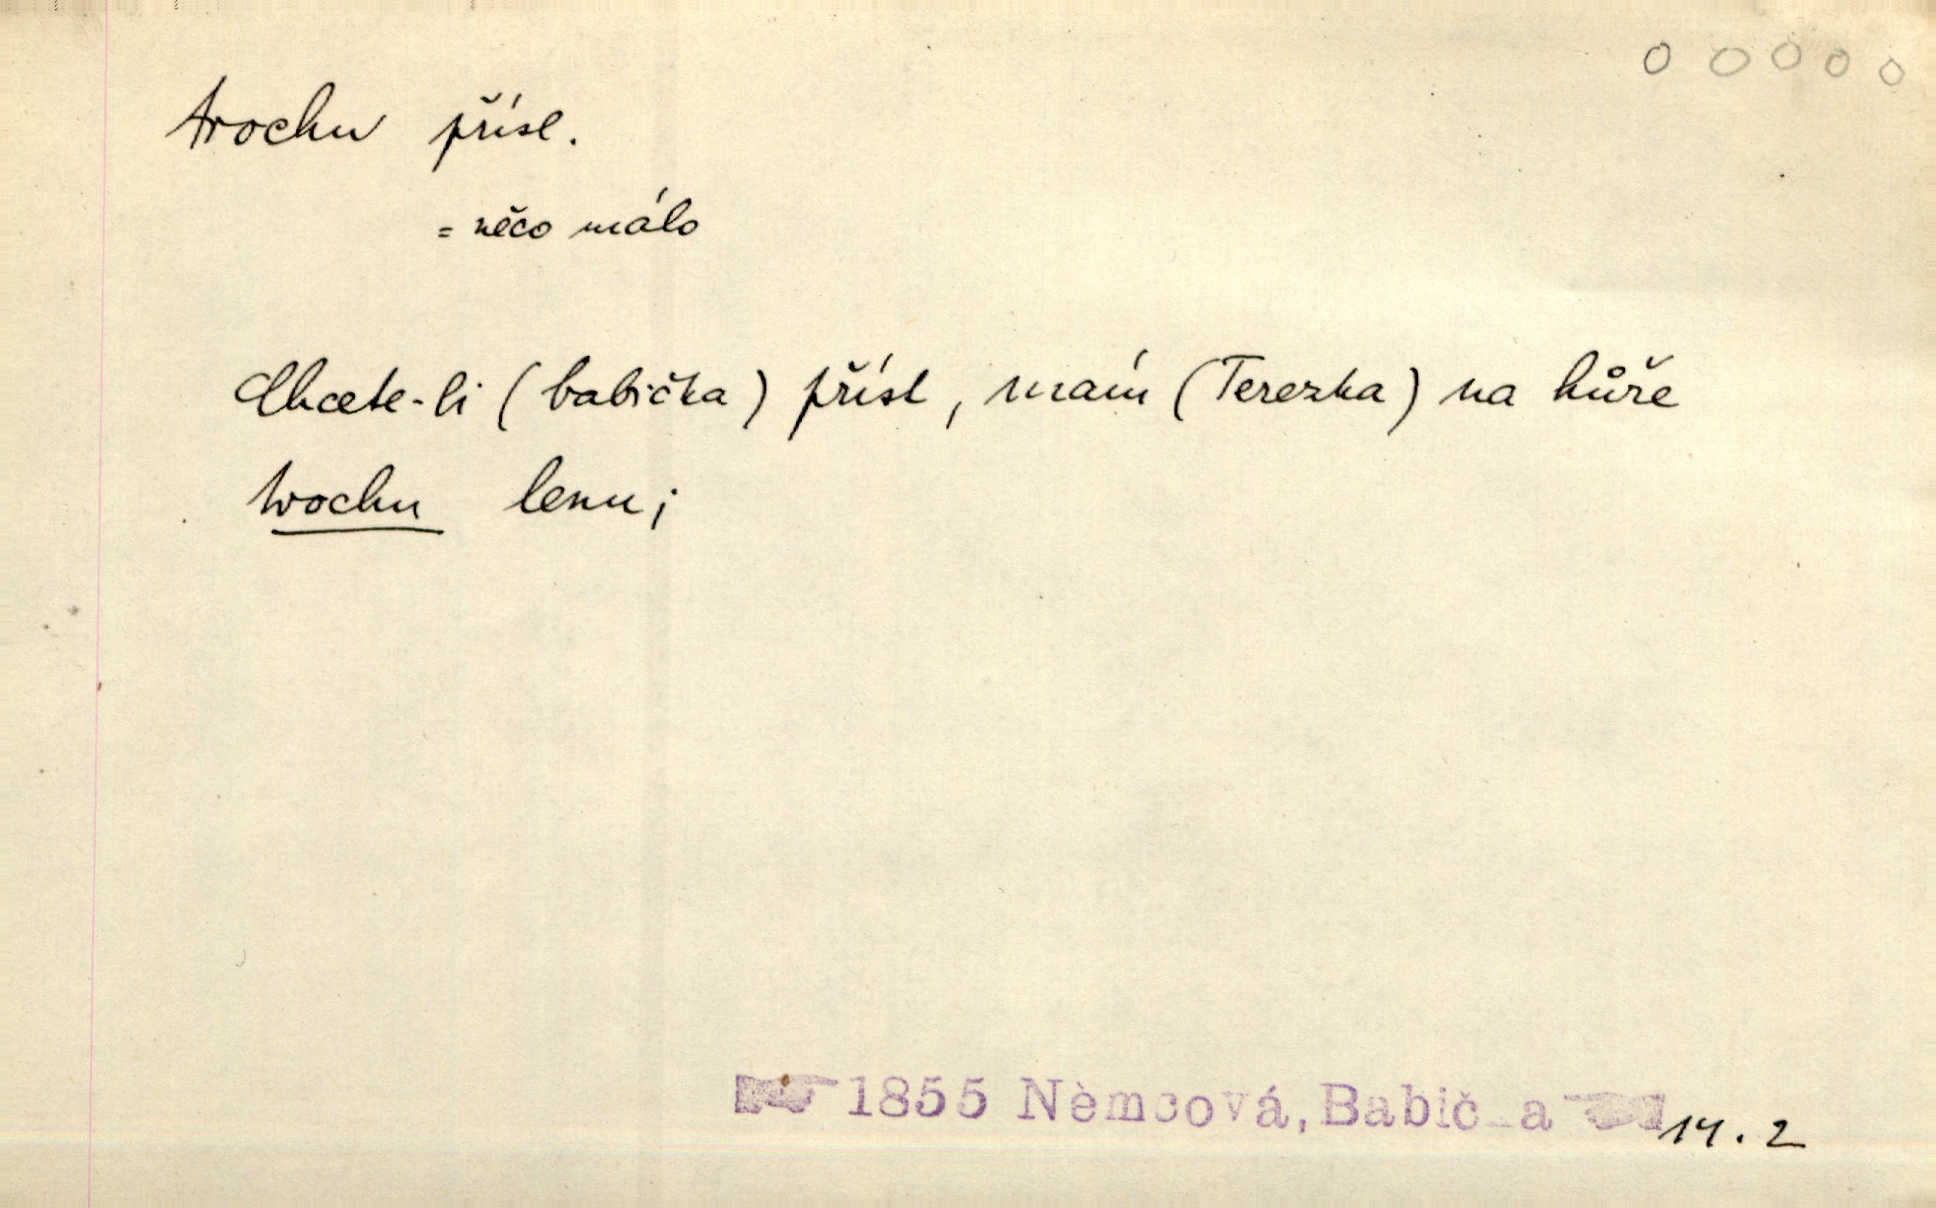 o o o o o
trochu přísl.
= něco málo
Chcete-li (babička) příst, mám (Terezka) na hůře
trochu lenu;
1855 Němcová, Babička 14.2